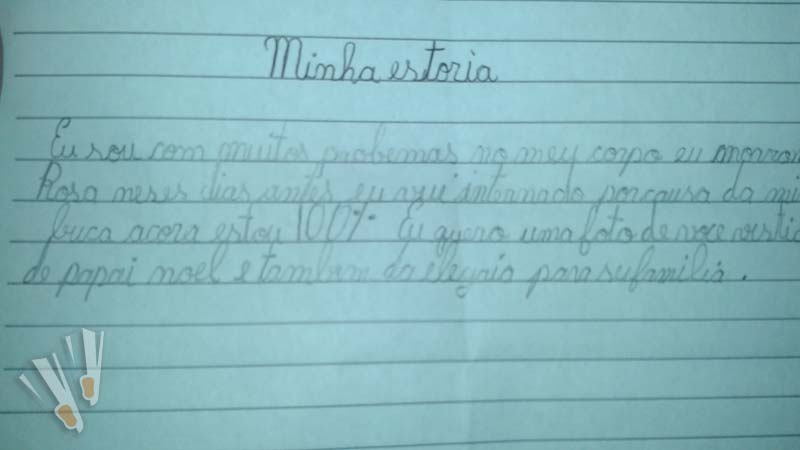 Minha estoria
Eu sou com muitos probemas no mey corpo eu
Rosa meses dias antes eu internado porcausa da mi
acora estou 100% Eu quero uma foto de voce vestid
de papai noel e tambem da para sufamilia.